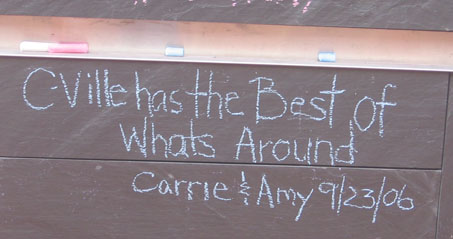 C-Ville has the Best of
Whats Around
Carrie & Amy 9/23/06